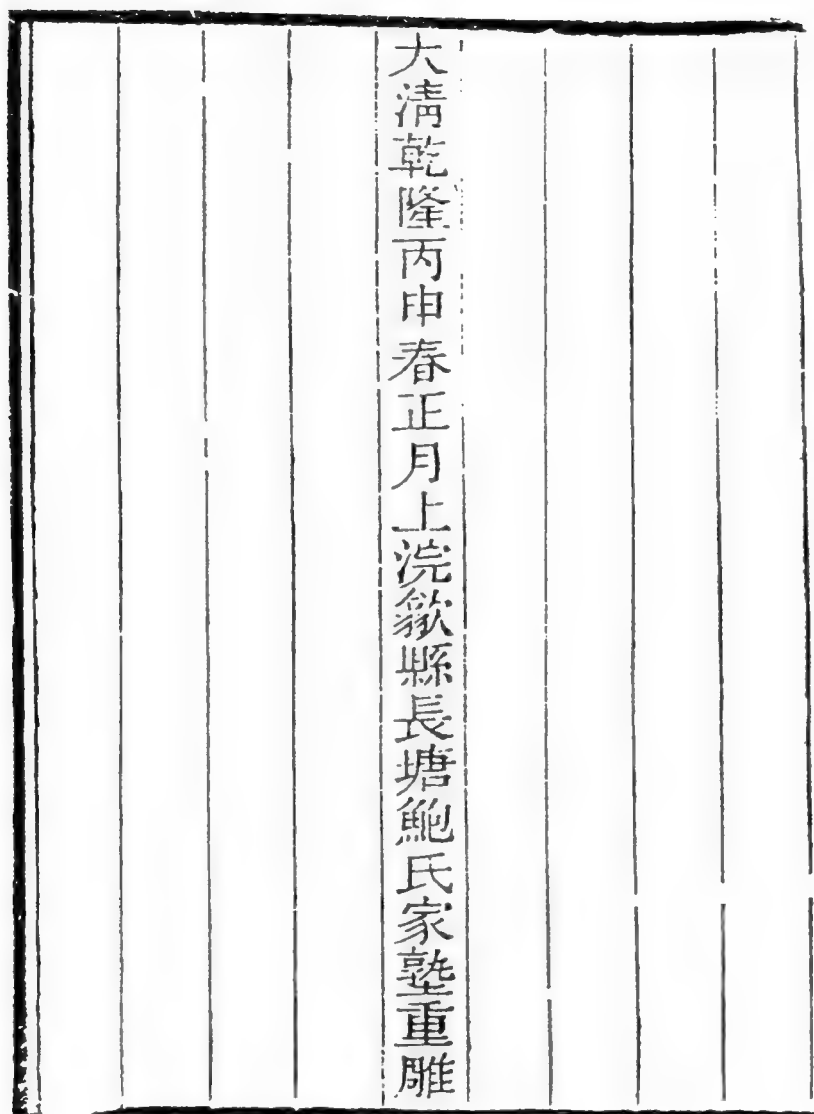 大淸乾隆丙申春正月上浣歙縣長塘鮑氏家塾重雕